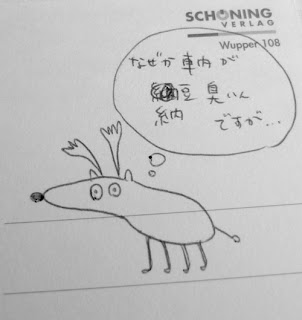 SCHÖNING
VERLAG
Wupper 108
なぜか車内が
納豆臭いん
ですが...